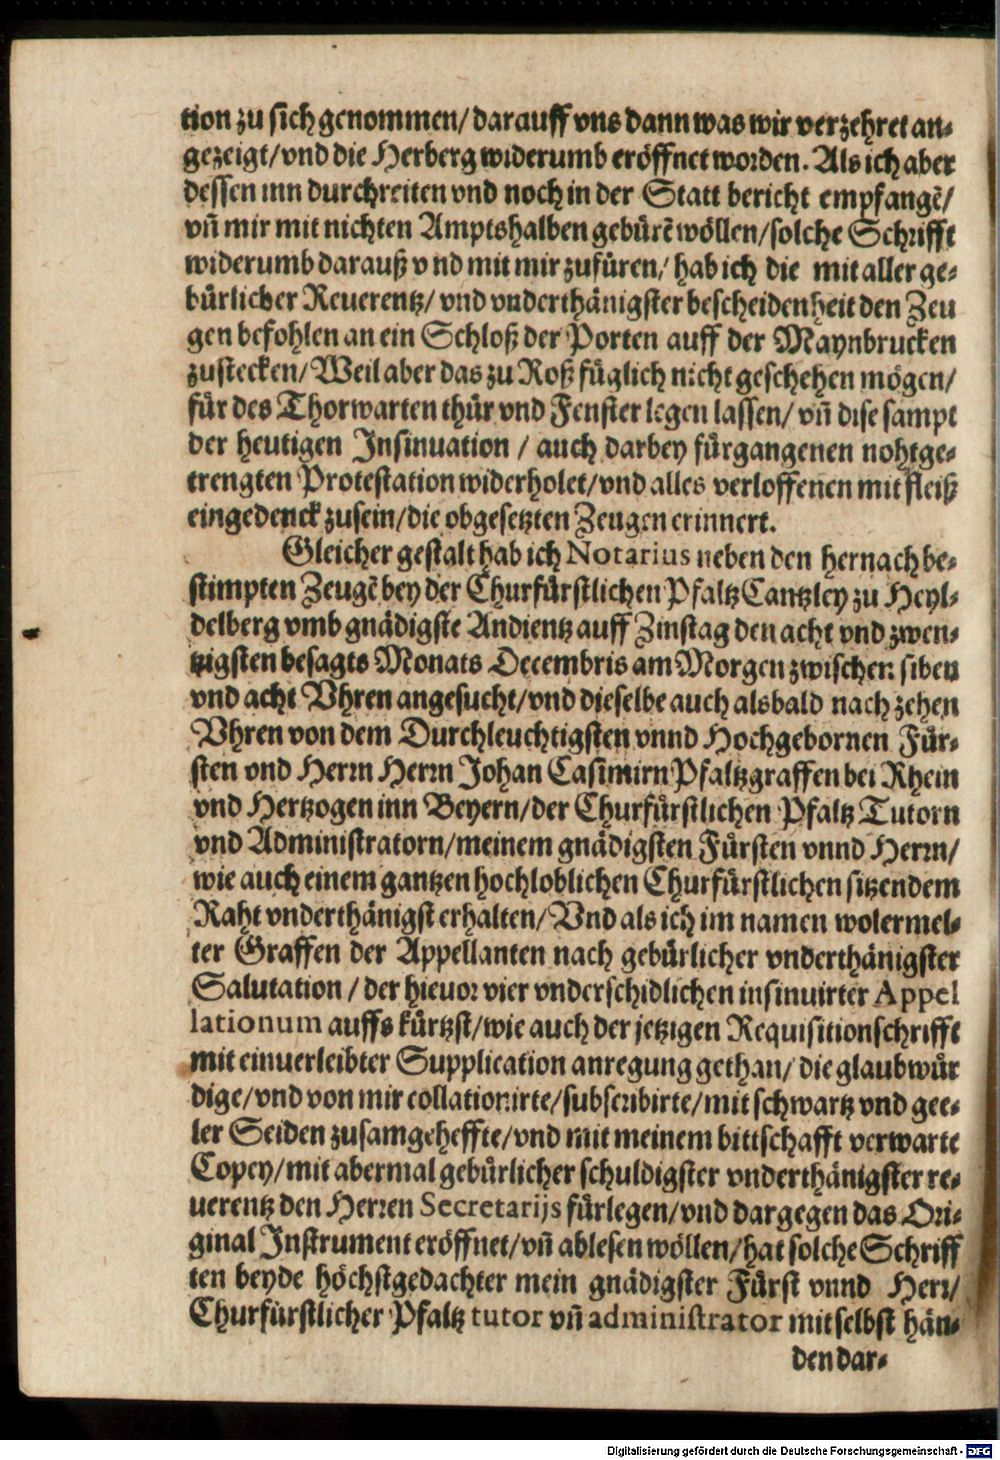 tion zu sich genommen/ darauff vns dann was wir verzehret an-
gezeigt/ vnd die Herberg widerumb eröffnet worden. Als ich aber
dessen inn durchreiten vnd noch in der Statt bericht empfangẽ/
vñ mir mit nichten Amptshalben gebürẽ wöllen/ solche Schrifft
widerumb darauß vnd mit mir zufüren/ hab ich die mit aller ge-
bürlicher Reuerentz/ vnd vnderthänigster bescheidenheit den Zeu
gen befohlen an ein Schloß der Porten auff der Maynbrucken
zustecken/ Weil aber das zu Roß füglich nicht geschehen mögen/
für des Thorwarten thür vnd Fenster legen lassen/ vñ dise sampt
der heutigen Insinuation / auch darbey fürgangenen nohtge-
trengten Protestation widerholet/ vnd alles verloffenen mit fleiß
eingedenck zusein/ die obgesetzten Zeugen erinnert.
Gleicher gestalt hab ich Notarius neben den hernach be-
stimpten Zeugẽ bey der Churfürstlichen Pfaltz Cantzley zu Heyl-
delberg vmb gnädigste Audientz auff Zinstag den acht vnd zwen-
tzigsten besagts Monats Decembris am Morgen zwischen siben
vnd acht Vhren angesucht/ vnd dieselbe auch alsbald nach zehen
Vhren von dem Durchleuchtigsten vnnd Hochgebornen Für-
sten vnd Herrn Herrn Johan Casimirn Pfaltzgraffen bei Rhein
vnd Hertzogen inn Beyern/ der Churfürstlichen Pfaltz Tutorn
vnd Administratorn/ meinem gnädigsten Fürsten vnnd Herrn/
wie auch einem gantzen hochloblichen Churfürstlichen sitzendem
Raht vnderthänigst erhalten/ Vnd als ich im namen wolermel-
ter Graffen der Appellanten nach gebürlicher vnderthänigster
Salutation / der hieuor vier vnderschidlichen insinuirter Appel
lationum auffs kürtzst/ wie auch der jetzigen Requisitionschrifft
mit einuerleibter Supplication anregung gethan/ die glaubwür
dige/ vnd von mir collationirte/ subscribirte/ mit schwartz vnd gee-
ler Seiden zusamgeheffte/ vnd mit meinem bittschafft verwarte
Copey/ mit abermal gebürlicher schuldigster vnderthänigster re-
uerentz den Herren Secretarijs fürlegen/ vnd dargegen das Ori-
ginal Instrument eröffnet/ vñ ablesen wöllen/ hat solche Schriff
ten beyde höchstgedachter mein gnädigster Fürst vnnd Herr/
Churfürstlicher Pfaltz tutor vñ administrator mit selbst hän-
den dar-
Digitalisierung gefördert durch die Deutsche Forschungsgemeinschaft - DFG